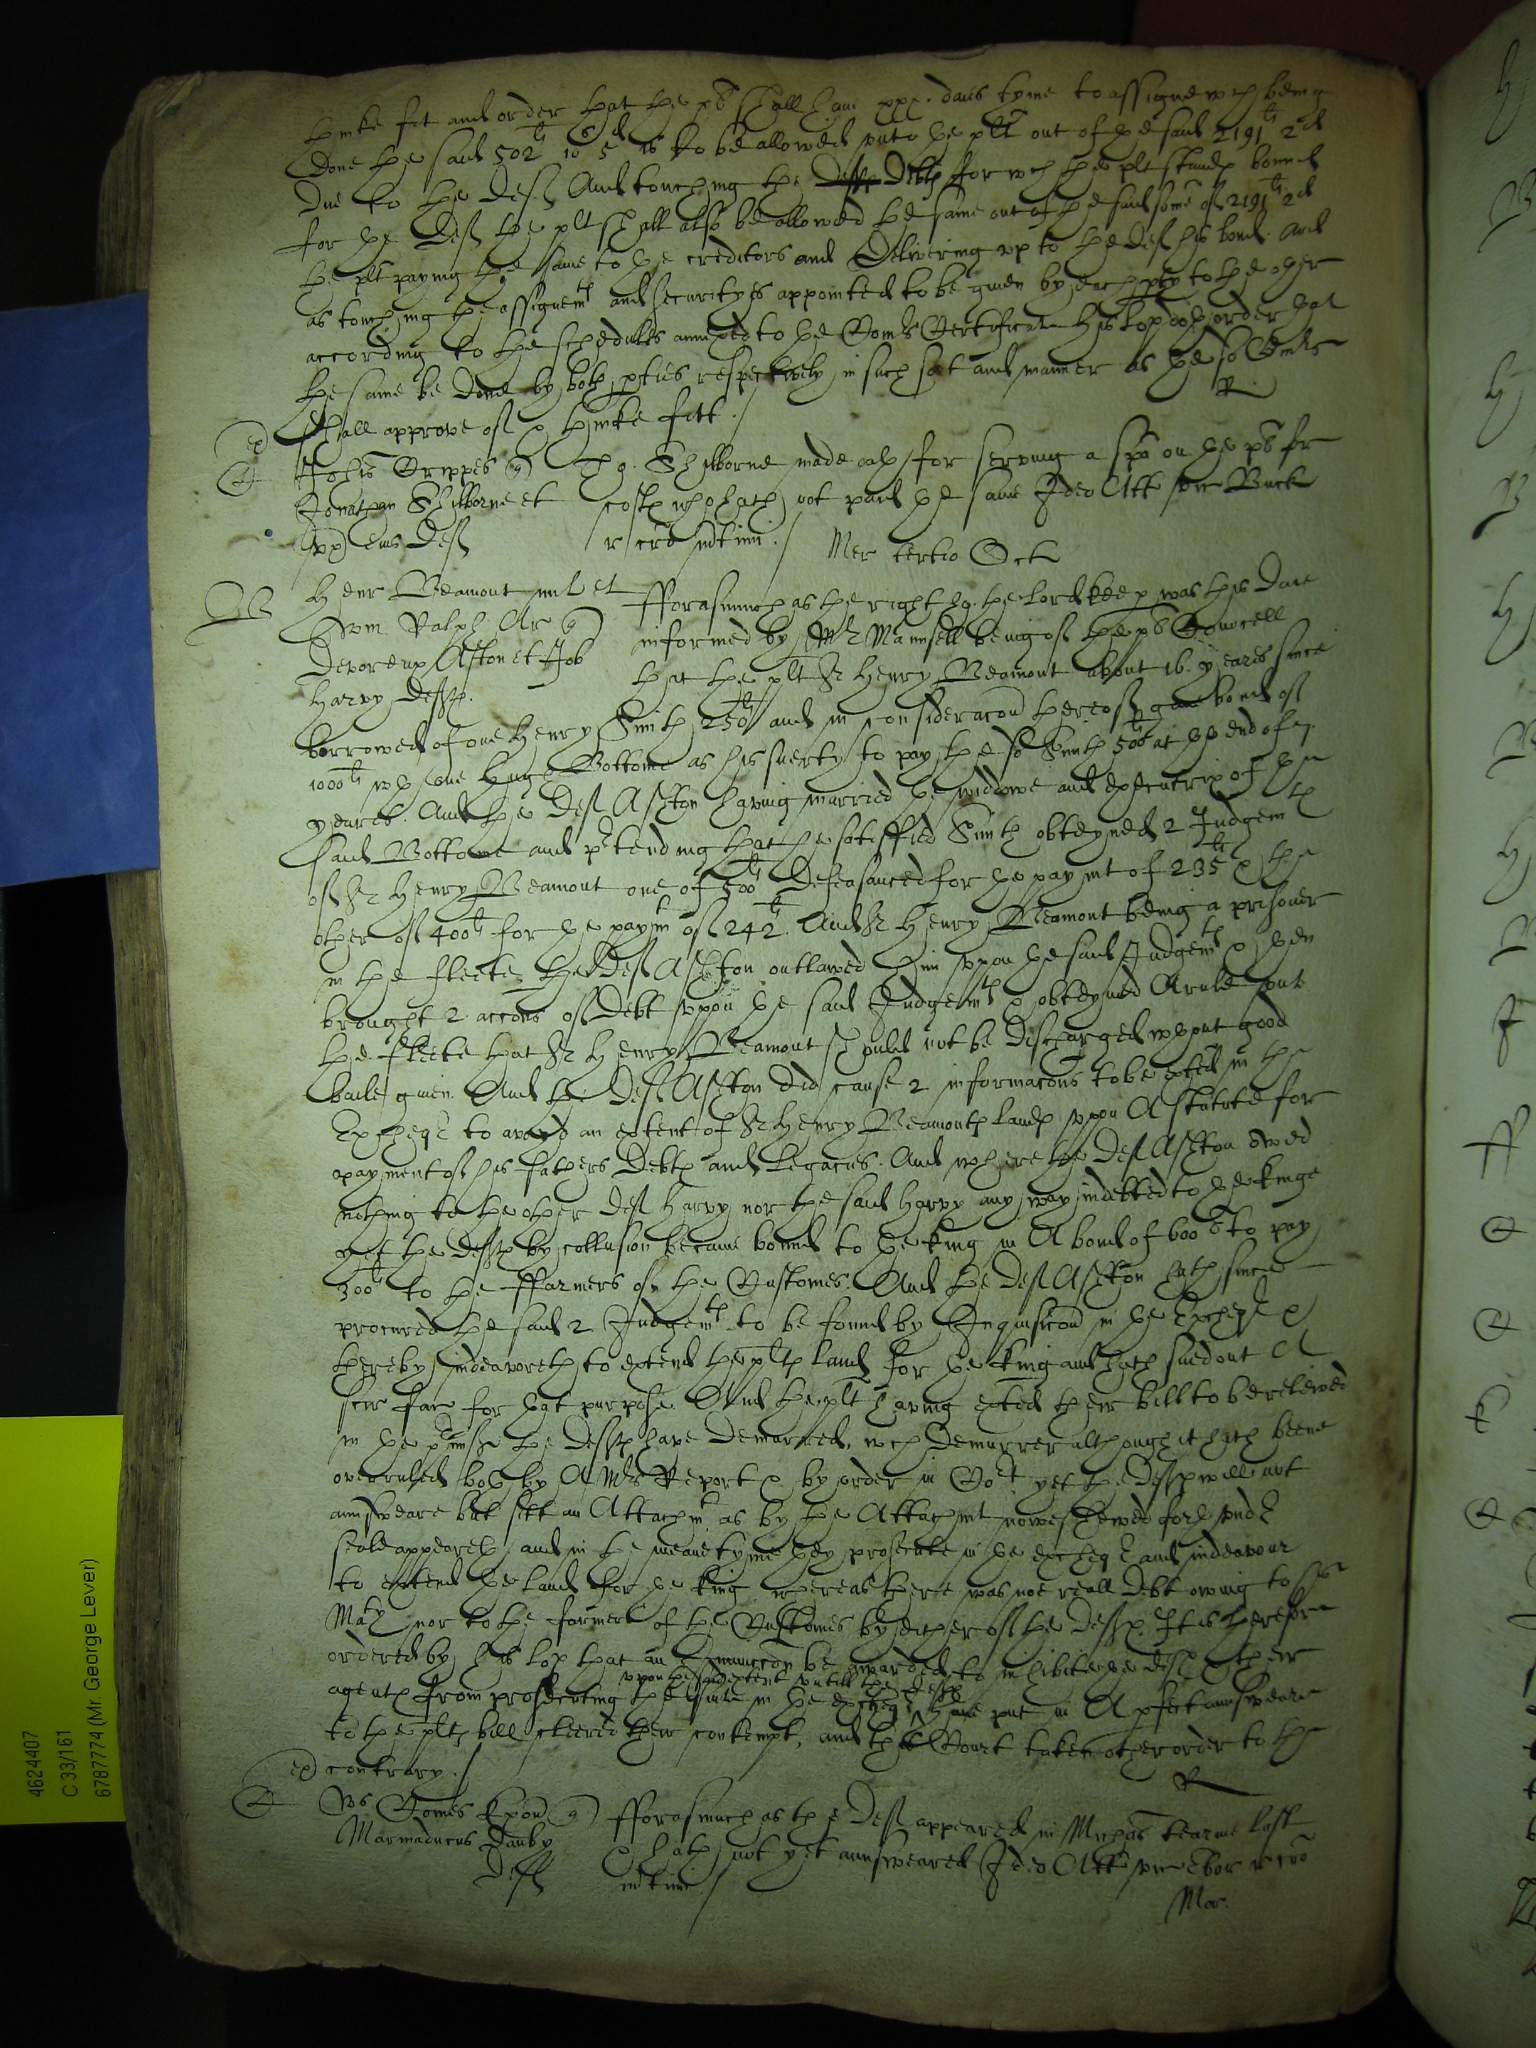 thinke fit and order that the pl shall have xxx. daies tyme to assigne wch being
Done the said 502li 10s 5d is to be allowed unto the plt out of the said 2191li 2s
due to the Deft And touching the Debts for wch the plt stands bound
for the Deft the plt shall also be allowed the same out of the said some of 2191li 2s
the plt paying the same to the creditors and Delivering up to the Deft his bond. And
as touching the assignemt and securityes appointed to be given by each pty to the other
according to the schedules annexed to the Comrs Certificate his Lop doth order that
the same be Done by both pties respectively in such sort and manner as the sd Comrs
shall approve of & thinke fitt. /
R
ex
Johis Crippes q
Jonathan Shilborne et
ux eius Deft
Tho. Shilborne made oath for serving a spa on the pl for
costs who hath not paid the same Ideo Att vic Buck
r crd indtim. /
Mer tertio Oct
Henr Beamont mil et
Wm Ralph Ar q
Devoreux Aston et Job
Harvy Defts.
Fforasmuch as the right ho. the Lord Keep was this Daie
informed by Mr Maunsell being of the pl Councell
that the plt Sr Henry Beamont about 16. yeares since
borrowed of one Henry Smith 250li and in consideracon thereof gave bond of
1000li wth one Hugh Bottome as his suerty to pay the sd Smith 500li at the end of 7.
yeares. And the Deft Ashton having married the widdowe and executrix of the
said Bottome and ptending that he satisffied Smith obteyned 2 Judgemts
of Sr Henry Beamont one of 500li Defeasanced for the paymt of 235li & the
other of 400li for the paymt of 242li. And Sr Henry Beamont being a prisoner
in the fleete the Deft Ashton outlawed him upon the said Judgemts & then
brought 2 accons of Debt upon the said Judgemts & obteyned A rule out
the fleete that Sr Henry Beamont should not be Discharged wthout good
baile given. And the Deft Ashton did cause 2 informacons to be exted in the
Excheqr to avoyd an extent of Sr Henry Beamonts lands upon A statute for
payment of his fathers Debts and Legacies. And where the Deft Ashton owed
nothing to the other Deft Harvy nor the said Harvy any way indebted to the kinge
yet the Defts by collusion became bound to the king in A bond of 600li to pay
300li to the ffarmers of the Customes. And the Deft Ashton hath since
procured the said 2 Judgemts to be found by Inquisicon in the Excheqr &
thereby indeavoreth to extend the plts land for the king and hath sued out A
scir fac for that purpose And the plt having exted their bill to be releived
in the pmisses the Defts have Demurred, wch Demurrer although it hath beene
overruled both by A Mrs Report & by order in Cort yet the Defts will not
aunsweare but sitt an Attachmt as by the Attachmt nowe shewed forth undr
seale appeareth, and in the meane tyme they prosecute in the excheqr and indeavour
to extend the land for the king whereas there was noe reall Debt owing to his
Maty nor to the farmers of the Customes by either of the Defts. It is therefore
ordered by his Lop that an Iniunccon be awarded to inhibite the Defts & their
upon the said extent untill the Defts
agents from prosecuting the suite in the excheqr have put in A pfect aunsweare
to the plts bill cleered their contempt, and this Court taken other order to the
contrary. /
R
ex
Ws Comes Exon q
Marmaducus Danby
Deft
Fforasmuch as the Deft appeared in Michas tearme last
& hath not yet aunsweared Ideo Att vic Ebor r crd
indtim. /
Mer.
4624407
C 33/161
6787774 (Mr. George Lever)